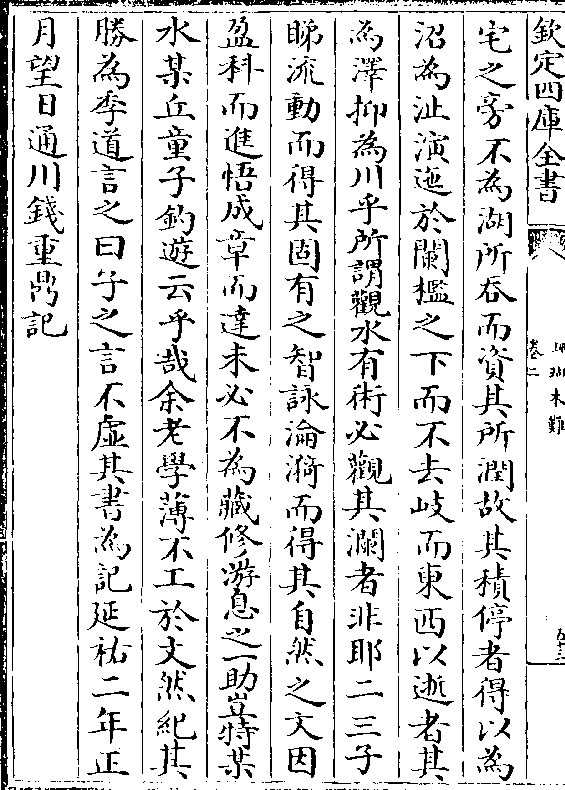 欽定四庫全書
珊瑚木難
卷二
五十二
宅之旁不為湖所吞而資其所潤故其積停者得以為
沼為沚演迤於闌檻之下而不去岐而東西以逝者其
為澤抑為川乎所謂觀水有術必觀其瀾者非耶二三子
睇流動而得其固有之智詠淪漪而得其自然之文因
盈科而進悟成章而達未必不為藏修游息之一助豈特某
水某丘童子釣遊云乎哉余老學薄不工於文然紀其
勝為季道言之曰子之言不虛其書為記延祐二年正
月望日通川錢重鼎記